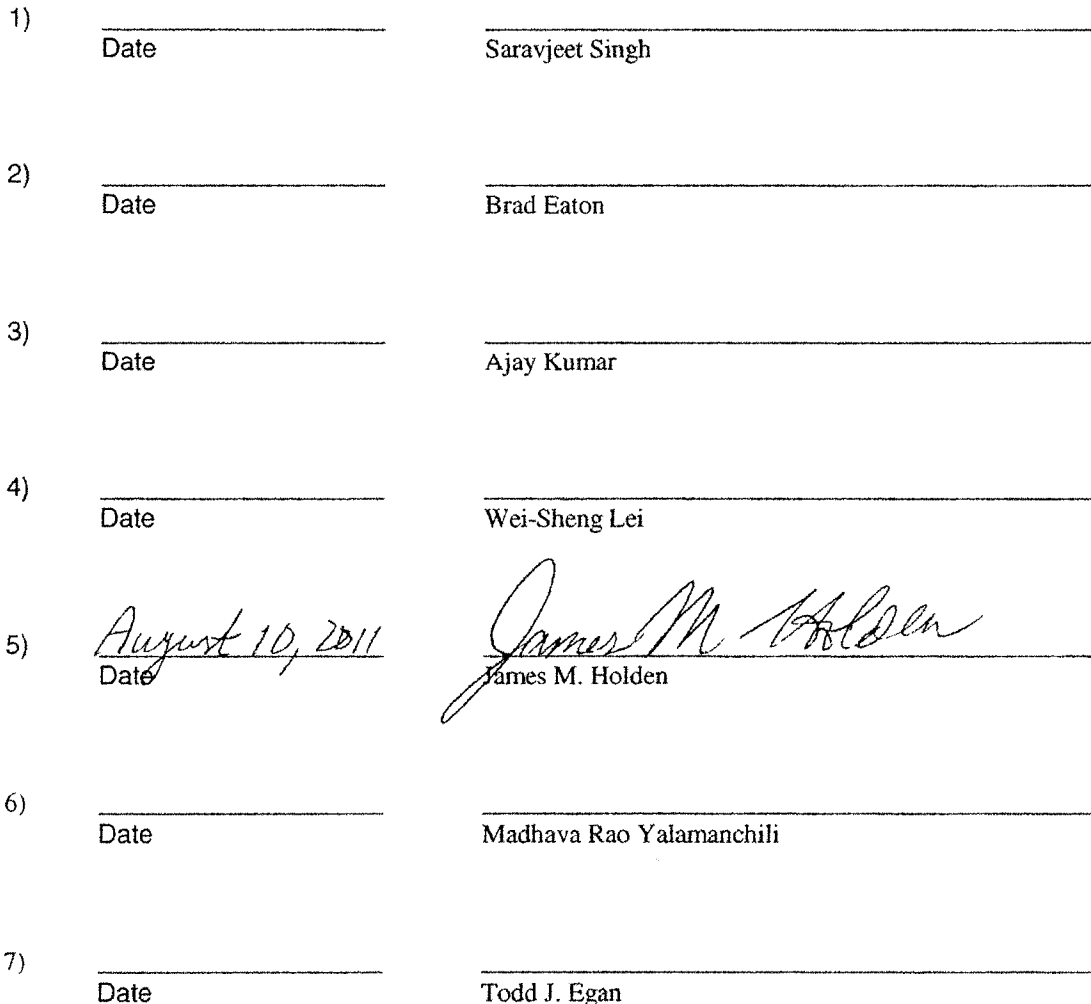 1)
Date Saravjeet Singh
2)
Date Brad Eaton
3)
Date Ajay Kumar
4)
Date Wei-Sheng Lei
5) August 10, 2011 James M Holden
Date James M. Holden
6)
Date Madhava Rao Yalamanchili
7)
Date Todd J. Egan